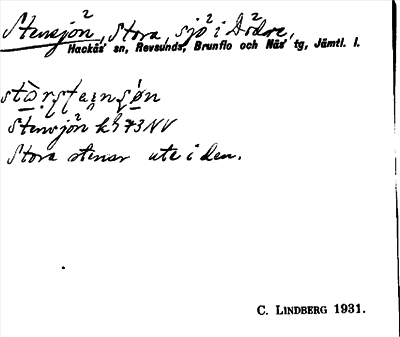 Stensjön², Stora, sjö² i Dödre,
Hackås' sn, Revsunds, Brunflo och Näs' tg, Jämtl. l.
Stensjön² kb 73 NV
Stora stenar ute i den.
C. LINDBERG 1931.